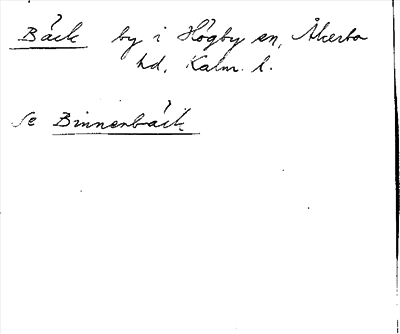 Bäck by i Högby sn, Åkerbo
hd, Kalm. l.
Se Binnerbäck